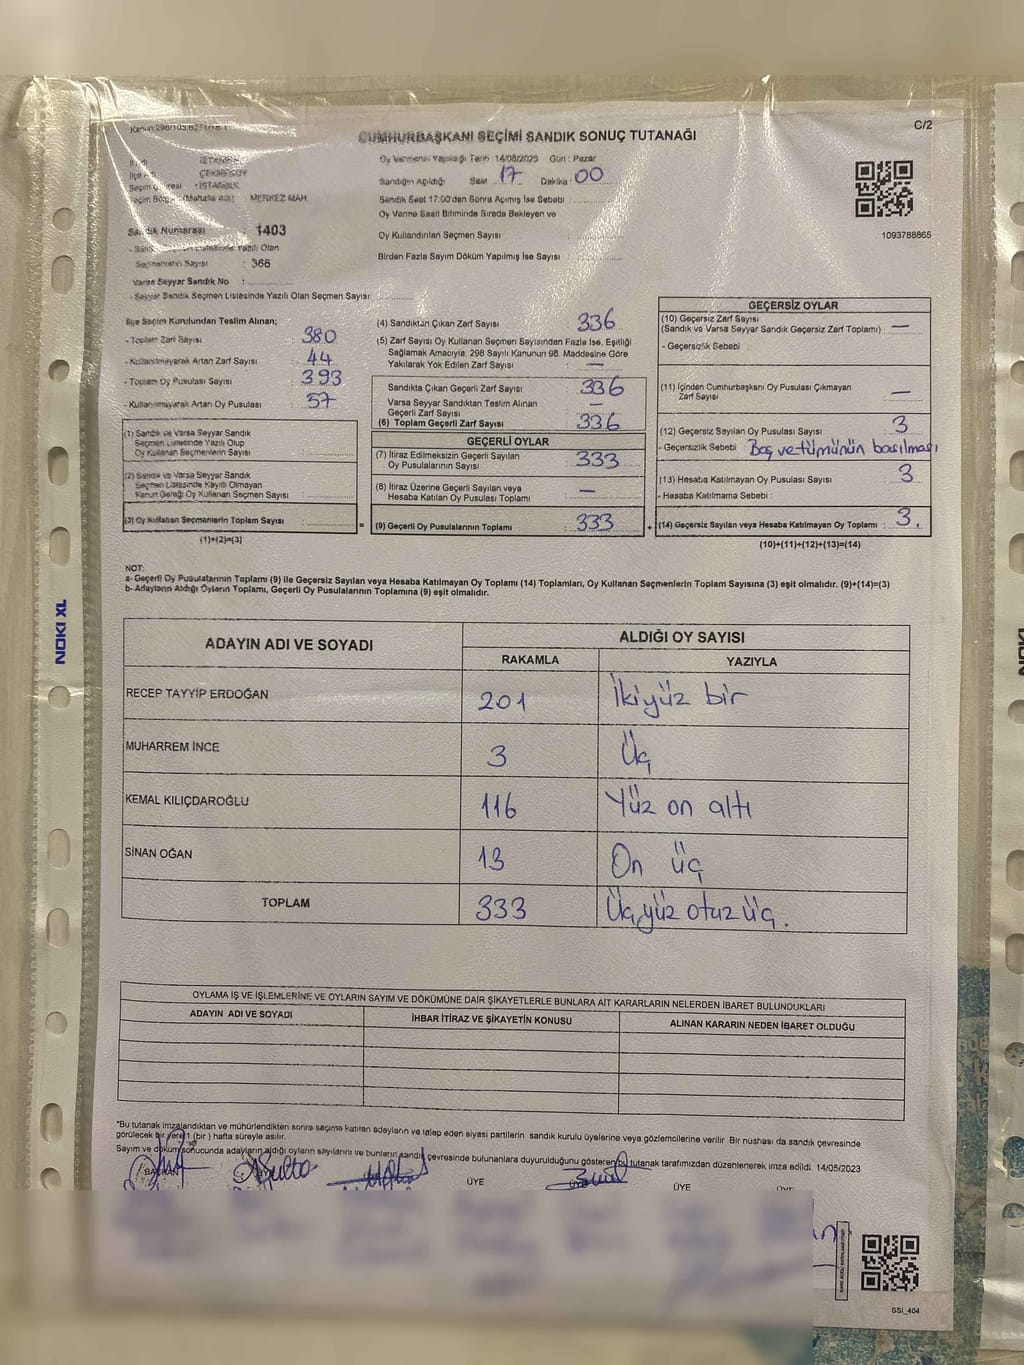 Kanun 298/105,6271/18-1
C/2
CUMHURBAŞKANI SEÇİMİ SANDIK SONUÇ TUTANAĞI
Oy Vermenin Yapıldığı Tarih 14/05/2023 Gün : Pazar
İSTANBUL
İlçe Adı ÇEKMEKÖY
Sandığın Açıldığı Saat 17 Dakika : 00
Seçim Çevresi - İSTANBUL
Seçim Bölgesi (Mahalle Adı) MERKEZ MAH.
Sandık Saat 17:00'den Sonra Açılmış İse Sebebi :
Oy Verme Saati Bitiminde Sırada Bekleyen ve
Oy Kullandırılan Seçmen Sayısı :
Sandık Numarası : 1403
1093788865
- Sandık Seçmen Listesinde Yazılı Olan
Seçmenlerin Sayısı : 366
Birden Fazla Sayım Döküm Yapılmış İse Sayısı :
Varsa Seyyar Sandık No :
- Seyyar Sandık Seçmen Listesinde Yazılı Olan Seçmen Sayısı:
İlçe Seçim Kurulundan Teslim Alınan;
- Toplam Zarf Sayısı : 380
- Kullanılmayarak Artan Zarf Sayısı : 44
- Toplam Oy Pusulası Sayısı : 393
- Kullanılmayarak Artan Oy Pusulası : 57
(1) Sandık ve Varsa Seyyar Sandık
Seçmen Listesinde Yazılı Olup
Oy Kullanan Seçmenlerin Sayısı :
(2) Sandık ve Varsa Seyyar Sandık
Seçmen Listesinde Kayıtlı Olmayan
Kanun Gereği Oy Kullanan Seçmen Sayısı :
(3) Oy Kullanan Seçmenlerin Toplam Sayısı : =
(1)+(2)=(3)
(4) Sandıktan Çıkan Zarf Sayısı : 336
(5) Zarf Sayısı Oy Kullanan Seçmen Sayısından Fazla İse, Eşitliği
Sağlamak Amacıyla, 298 Sayılı Kanunun 98. Maddesine Göre
Yakılarak Yok Edilen Zarf Sayısı : —
Sandıkta Çıkan Geçerli Zarf Sayısı : 336
Varsa Seyyar Sandıktan Teslim Alınan
Geçerli Zarf Sayısı : —
(6) Toplam Geçerli Zarf Sayısı : 336
GEÇERLİ OYLAR
(7) İtiraz Edilmeksizin Geçerli Sayılan
Oy Pusulalarının Sayısı : 333
(8) İtiraz Üzerine Geçerli Sayılan veya
Hesaba Katılan Oy Pusulası Toplamı : —
(9) Geçerli Oy Pusulalarının Toplamı : 333 +
GEÇERSİZ OYLAR
(10) Geçersiz Zarf Sayısı
(Sandık ve Varsa Seyyar Sandık Geçersiz Zarf Toplamı) : —
- Geçersizlik Sebebi :
(11) İçinden Cumhurbaşkanı Oy Pusulası Çıkmayan
Zarf Sayısı : —
(12) Geçersiz Sayılan Oy Pusulası Sayısı : 3
- Geçersizlik Sebebi : Boş ve tümünün basılması
(13) Hesaba Katılmayan Oy Pusulası Sayısı : 3
- Hesaba Katılmama Sebebi :
(14) Geçersiz Sayılan veya Hesaba Katılmayan Oy Toplamı : 3.
(10)+(11)+(12)+(13)=(14)
NOT:
a- Geçerli Oy Pusulalarının Toplamı (9) ile Geçersiz Sayılan veya Hesaba Katılmayan Oy Toplamı (14) Toplamları, Oy Kullanan Seçmenlerin Toplam Sayısına (3) eşit olmalıdır. (9)+(14)=(3)
b- Adayların Aldığı Oyların Toplamı, Geçerli Oy Pusulalarının Toplamına (9) eşit olmalıdır.
ADAYIN ADI VE SOYADI ALDIĞI OY SAYISI
RAKAMLA YAZIYLA
RECEP TAYYİP ERDOĞAN 201 İkiyüz bir
MUHARREM İNCE 3 Üç
KEMAL KILIÇDAROĞLU 116 Yüz on altı
SİNAN OĞAN 13 On üç
TOPLAM 333 Üçyüz otuz üç.
OYLAMA İŞ VE İŞLEMLERİNE VE OYLARIN SAYIM VE DÖKÜMÜNE DAİR ŞİKAYETLERLE BUNLARA AİT KARARLARIN NELERDEN İBARET BULUNDUKLARI
ADAYIN ADI VE SOYADI İHBAR İTİRAZ VE ŞİKAYETİN KONUSU ALINAN KARARIN NEDEN İBARET OLDUĞU
*Bu tutanak imzalandıktan ve mühürlendikten sonra seçime katılan adayların ve talep eden siyasi partilerin sandık kurulu üyelerine veya gözlemcilerine verilir. Bir nüshası da sandık çevresinde
görülecek bir yere 1 (bir ) hafta süreyle asılır.
Sayım ve döküm sonucunda adayların aldığı oyların sayılarını ve bunların sandık çevresinde bulunanlara duyurulduğunu gösteren bu tutanak tarafımızdan düzenlenerek imza edildi. 14/05/2023
BAŞKAN ÜYE ÜYE ÜYE ÜYE
SSI_404
NOKI XL
NOKI